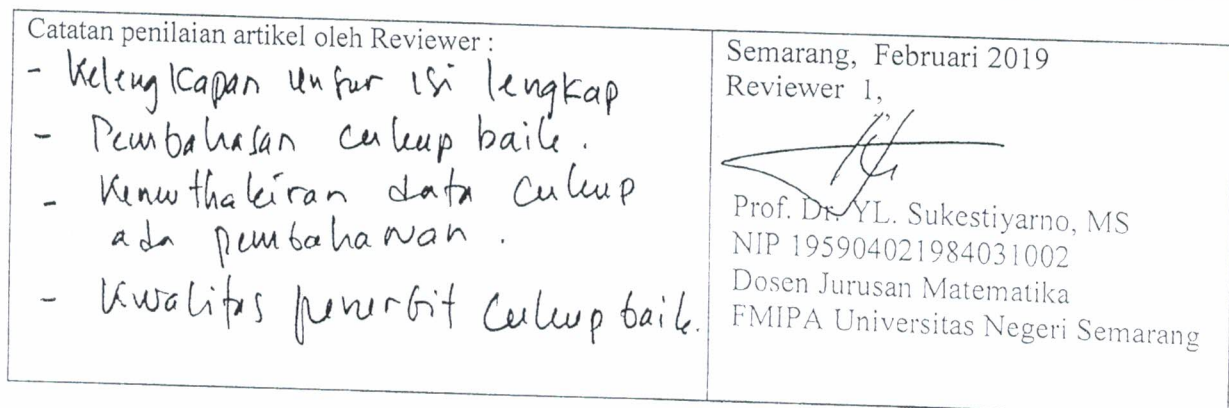 Catatan penilaian artikel oleh Reviewer :
- Kelengkapan unsur isi lengkap
- Pembahasan cukup baik.
- Kemuthakiran data cukup
ada pembaharuan.
- Kwalitas penerbit cukup baik.
Semarang, Februari 2019
Reviewer 1,
Prof. Dr. YL. Sukestiyarno, MS
NIP 195904021984031002
Dosen Jurusan Matematika
FMIPA Universitas Negeri Semarang